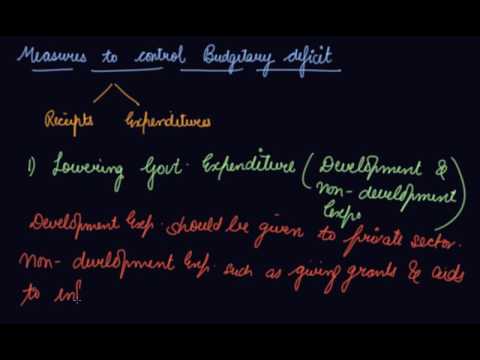 Measures to control Budgetary deficit
Receipts Expenditures
1) Lowering Govt. Expenditure (Development &
non-development
Exp.)
Development Exp. should be given to private sector.
Non-development Exp. such as giving grants & aids
to inf